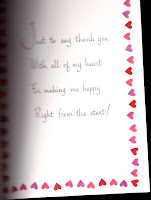 Just to say thank you
With all of my heart
For making me happy
Right from the start!